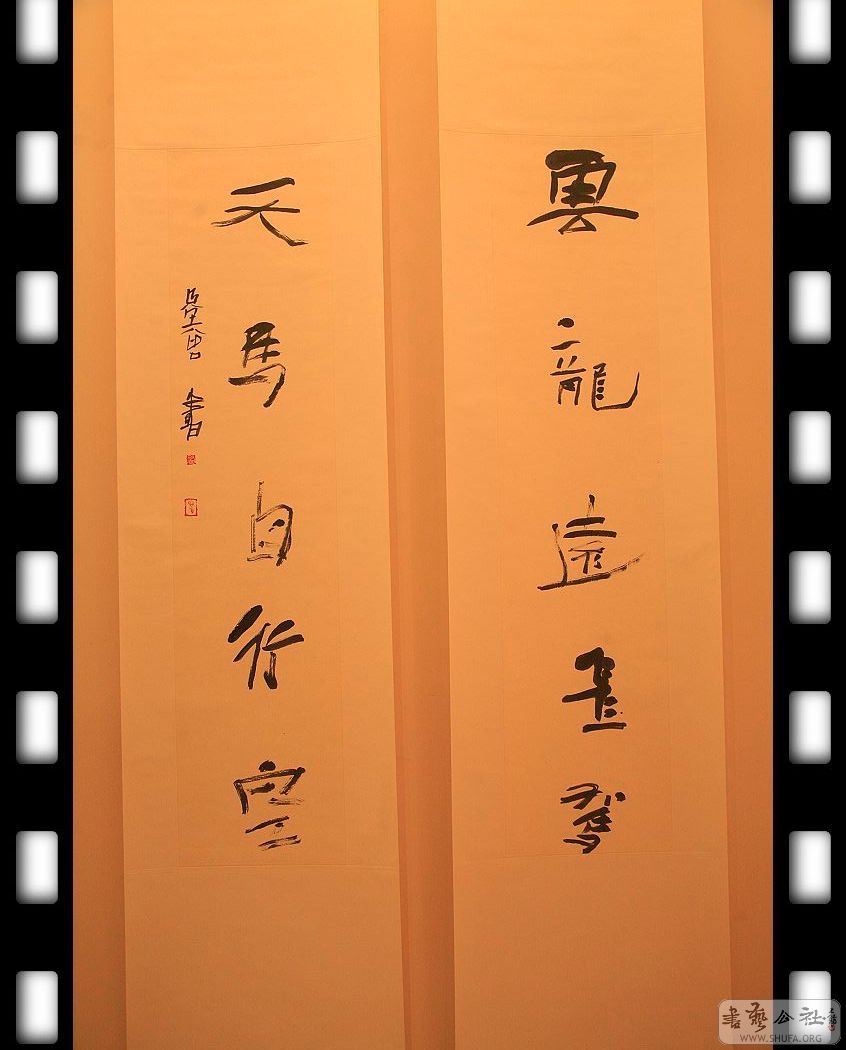 雲龍遠並駕
天馬自行空
書
書藝公社
WWW.SHUFA.ORG